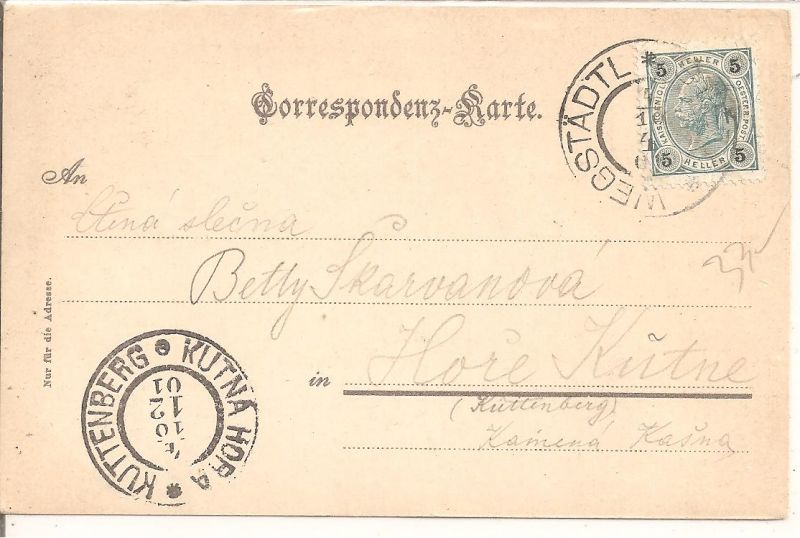 Correspondenz-Karte.
WIEGSTÄDTL *
1
4
5 HELLER 5
KAIS. KOENIGL.
OESTERR. POST.
5 HELLER 5
An
Ctěná slečna
Betty Škarvanová
in Hoře Kutné
(Kuttenberg)
Kamenná Kašna
Nur für die Adresse.
KUTTENBERG * KUTNÁ HORA *
10
12
1
01